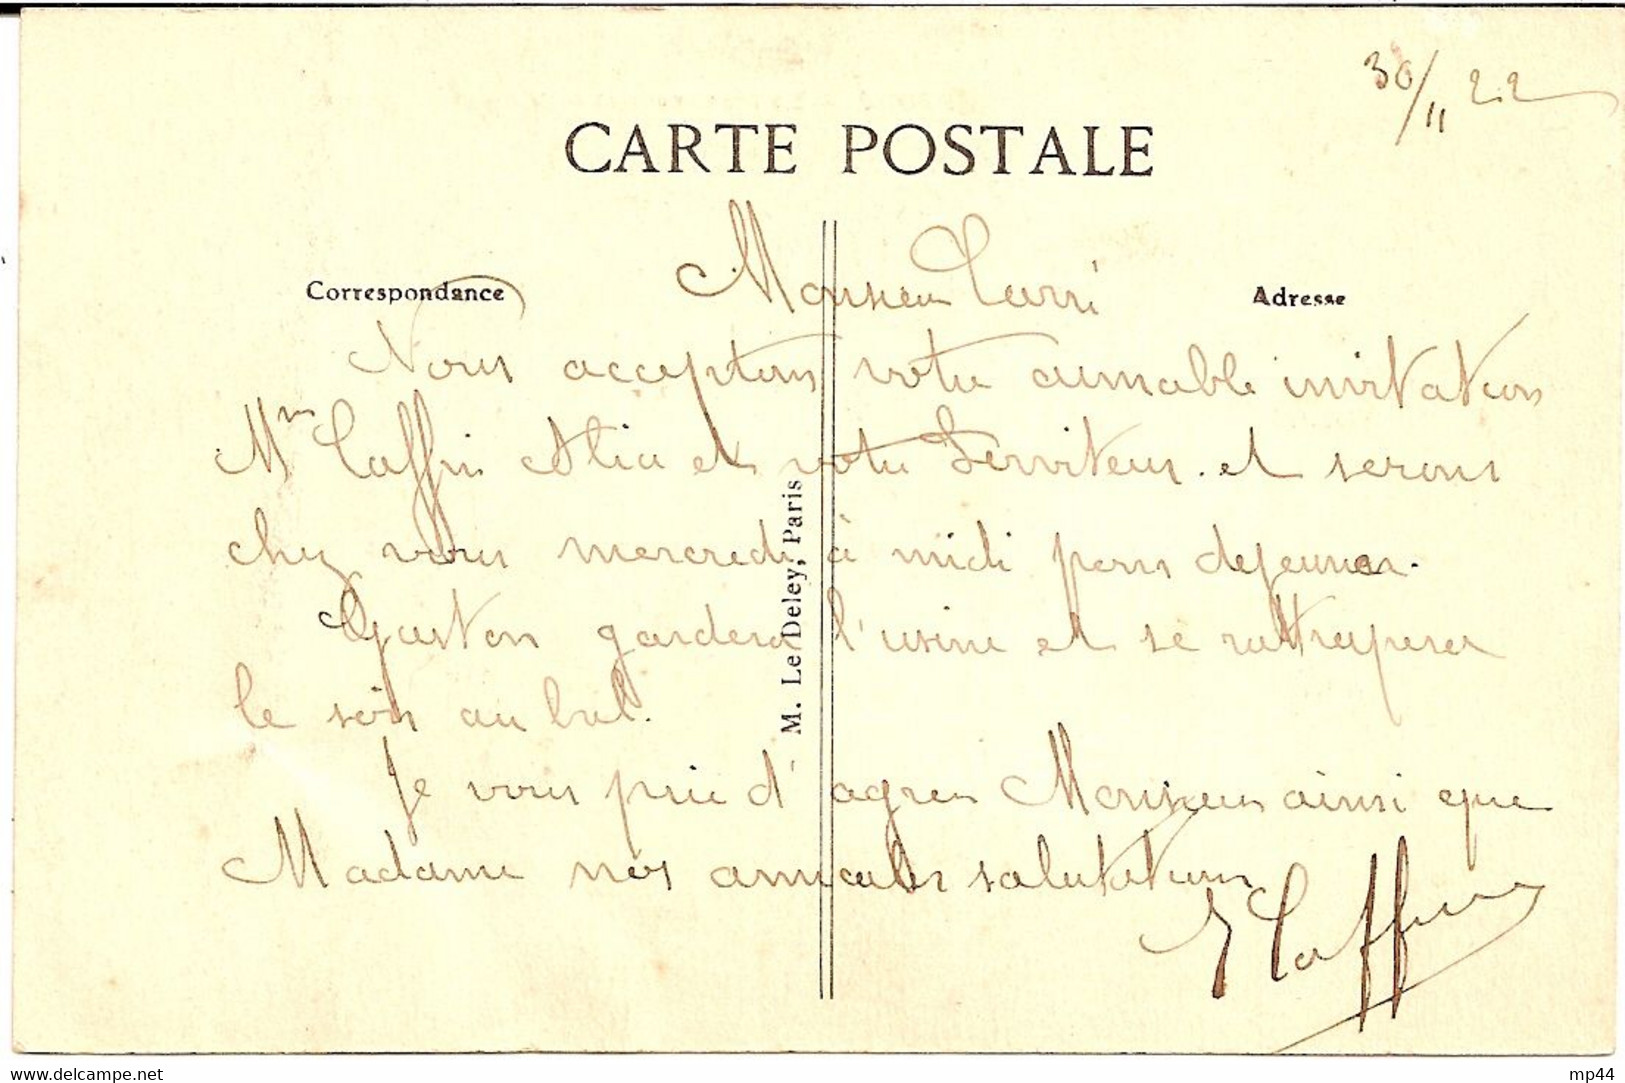 30/11 22
CARTE POSTALE
Correspondance
Adresse
Monsieur
Nous acceptons votre aimable invitation
Mme Caffin Alice et votre Serviteur. et serons
chez vous mercredi à midi pour dejeuner.
Gaston gardera l'usine et se rattrapera
le soir au bal.
Je vous prie d'agreer Monsieur ainsi que
Madame nos amicales salutations
Caffin
M. Le Deley, Paris
delcampe.net
mp44